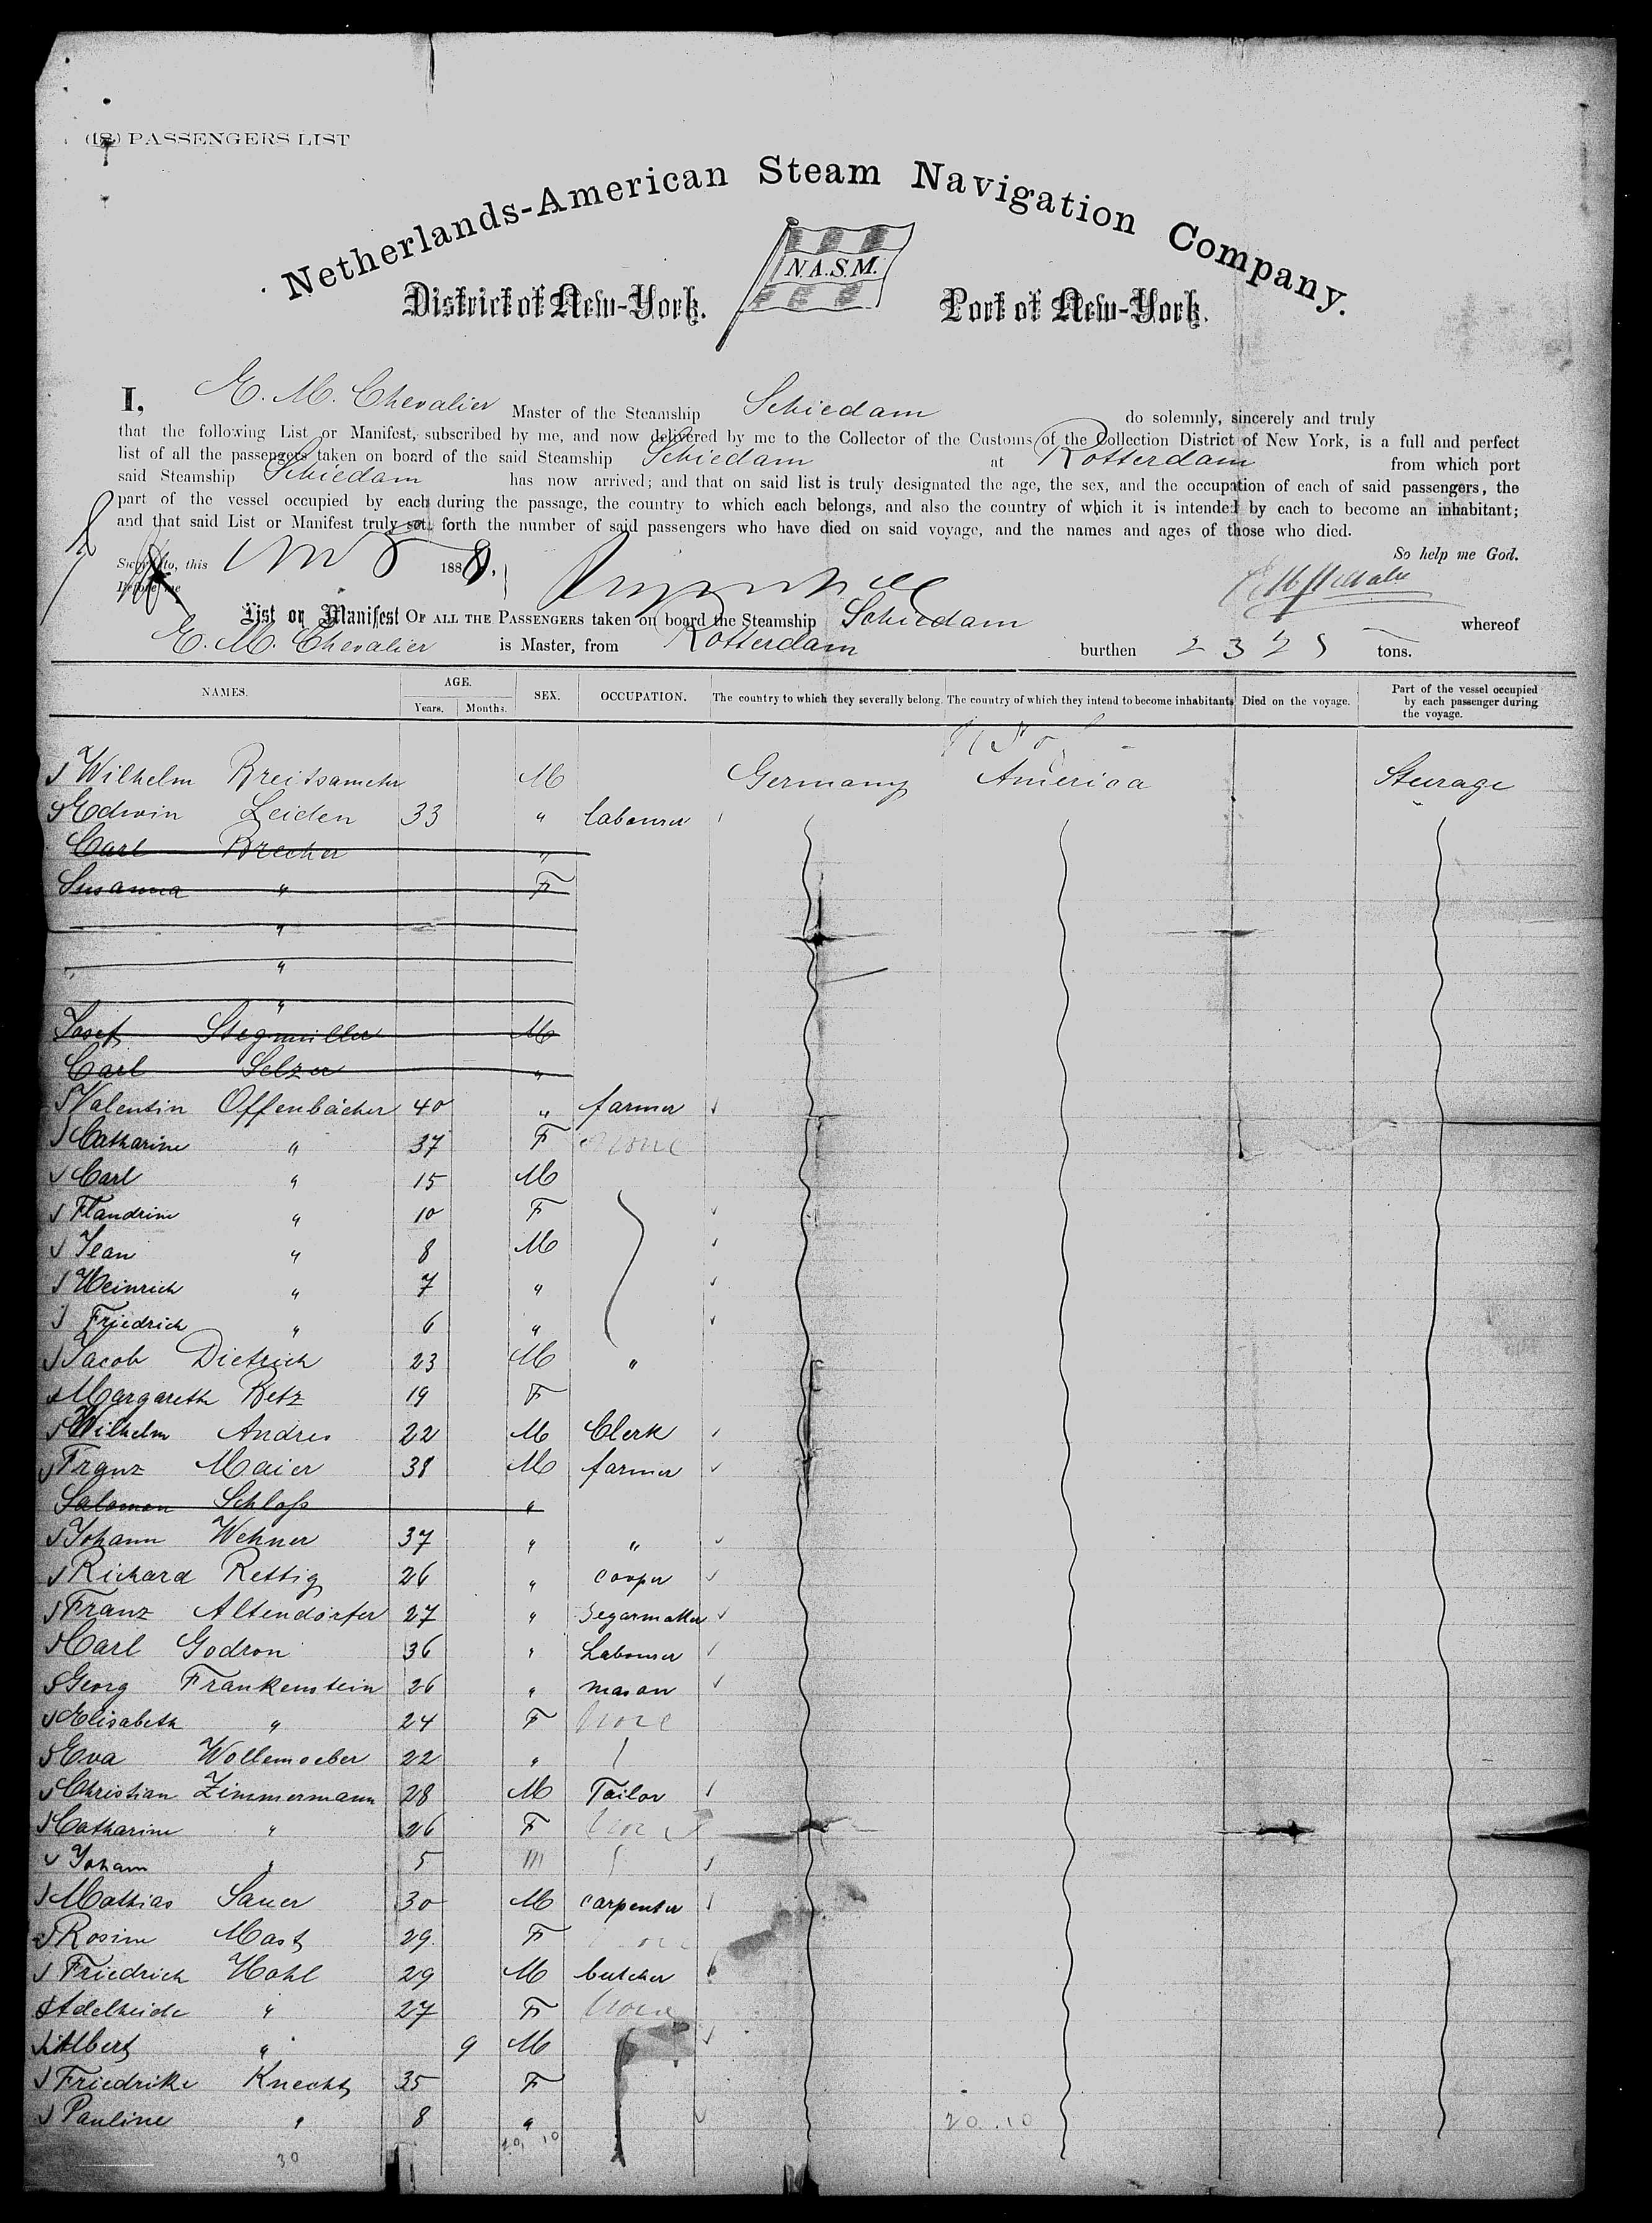 (18) PASSENGERS LIST
Netherlands-American Steam Navigation Company.
N.A.S.M.
District of New-York. Port of New-York.
I, E. M. Chevalier Master of the Steamship Schiedam do solemnly, sincerely and truly
that the following List or Manifest, subscribed by me, and now delivered by me to the Collector of the Customs of the Collection District of New York, is a full and perfect
list of all the passengers taken on board of the said Steamship Schiedam at Rotterdam from which port
said Steamship Schiedam has now arrived; and that on said list is truly designated the age, the sex, and the occupation of each of said passengers, the
part of the vessel occupied by each during the passage, the country to which each belongs, and also the country of which it is intended by each to become an inhabitant;
and that said List or Manifest truly sets forth the number of said passengers who have died on said voyage, and the names and ages of those who died.
So help me God.
Sworn to, this 188
Before me
List or Manifest OF ALL THE PASSENGERS taken on board the Steamship Schiedam whereof
E. M. Chevalier is Master, from Rotterdam burthen 2325 tons.
NAMES. AGE. Years. Months. SEX. OCCUPATION. The country to which they severally belong. The country of which they intend to become inhabitants Died on the voyage. Part of the vessel occupied by each passenger during the voyage.
Wilhelm Breitsameter M Germany America Steerage
Edwin Leiden 33 " labourer
Carl Brecher "
Susanna " F
"
"
"
Josef Stegmüller M
Carl Selzer "
Valentin Offenbächer 40 " farmer
Catharine " 37 F None
Carl " 15 M
Flandrine " 10 F
Jean " 8 M
Heinrich " 7 "
Friedrich " 6 "
Jacob Dietrich 23 M "
Margareth Betz 19 F
Wilhelm Andres 22 M Clerk
Franz Maier 38 M farmer
Salomon Schloß "
Johann Wehner 37 " "
Richard Rettig 26 " cooper
Franz Altendörfer 27 " Segarmaker
Carl Godron 36 " Labourer
Georg Frankenstein 26 " mason
Elisabeth " 24 F None
Eva Wollemoeber 22 "
Christian Zimmermann 28 M Tailor
Catharine " 26 F None
Joham " 5 M
Mathias Sauer 30 M carpenter
Rosine Mast 29 F None
Friedrich Hohl 29 M butcher
Adelheide " 27 F None
Albert " 9 M
Friedrike Knecht 35 F
Pauline " 8 "
30 20 10 20 10